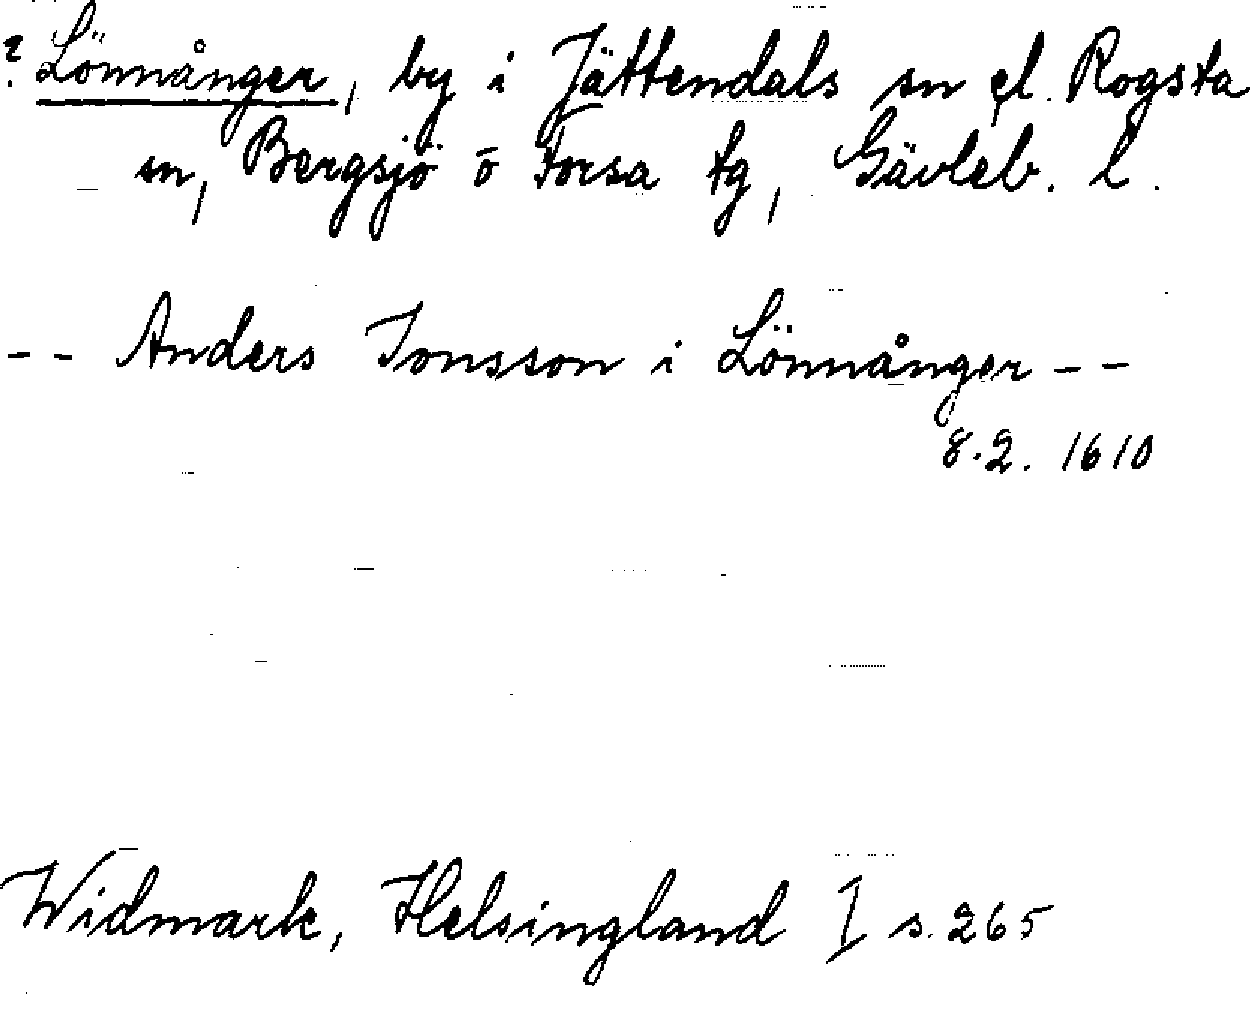 ? Lönnånger, by i Jättendals sn el. Rogsta
sn, Bergsjö o Forsa tg, Gävleb. l.
-- Anders Jonsson i Lönnånger --
8.2. 1610
Widmark, Helsingland I s. 265